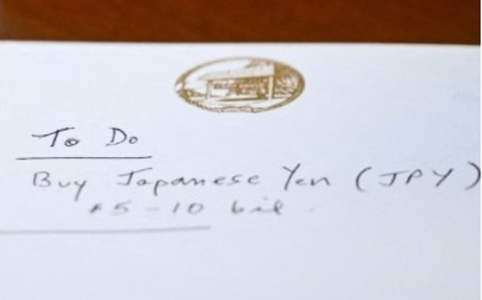 To Do
Buy Japanese Yen (JPY)
$5-10 bil